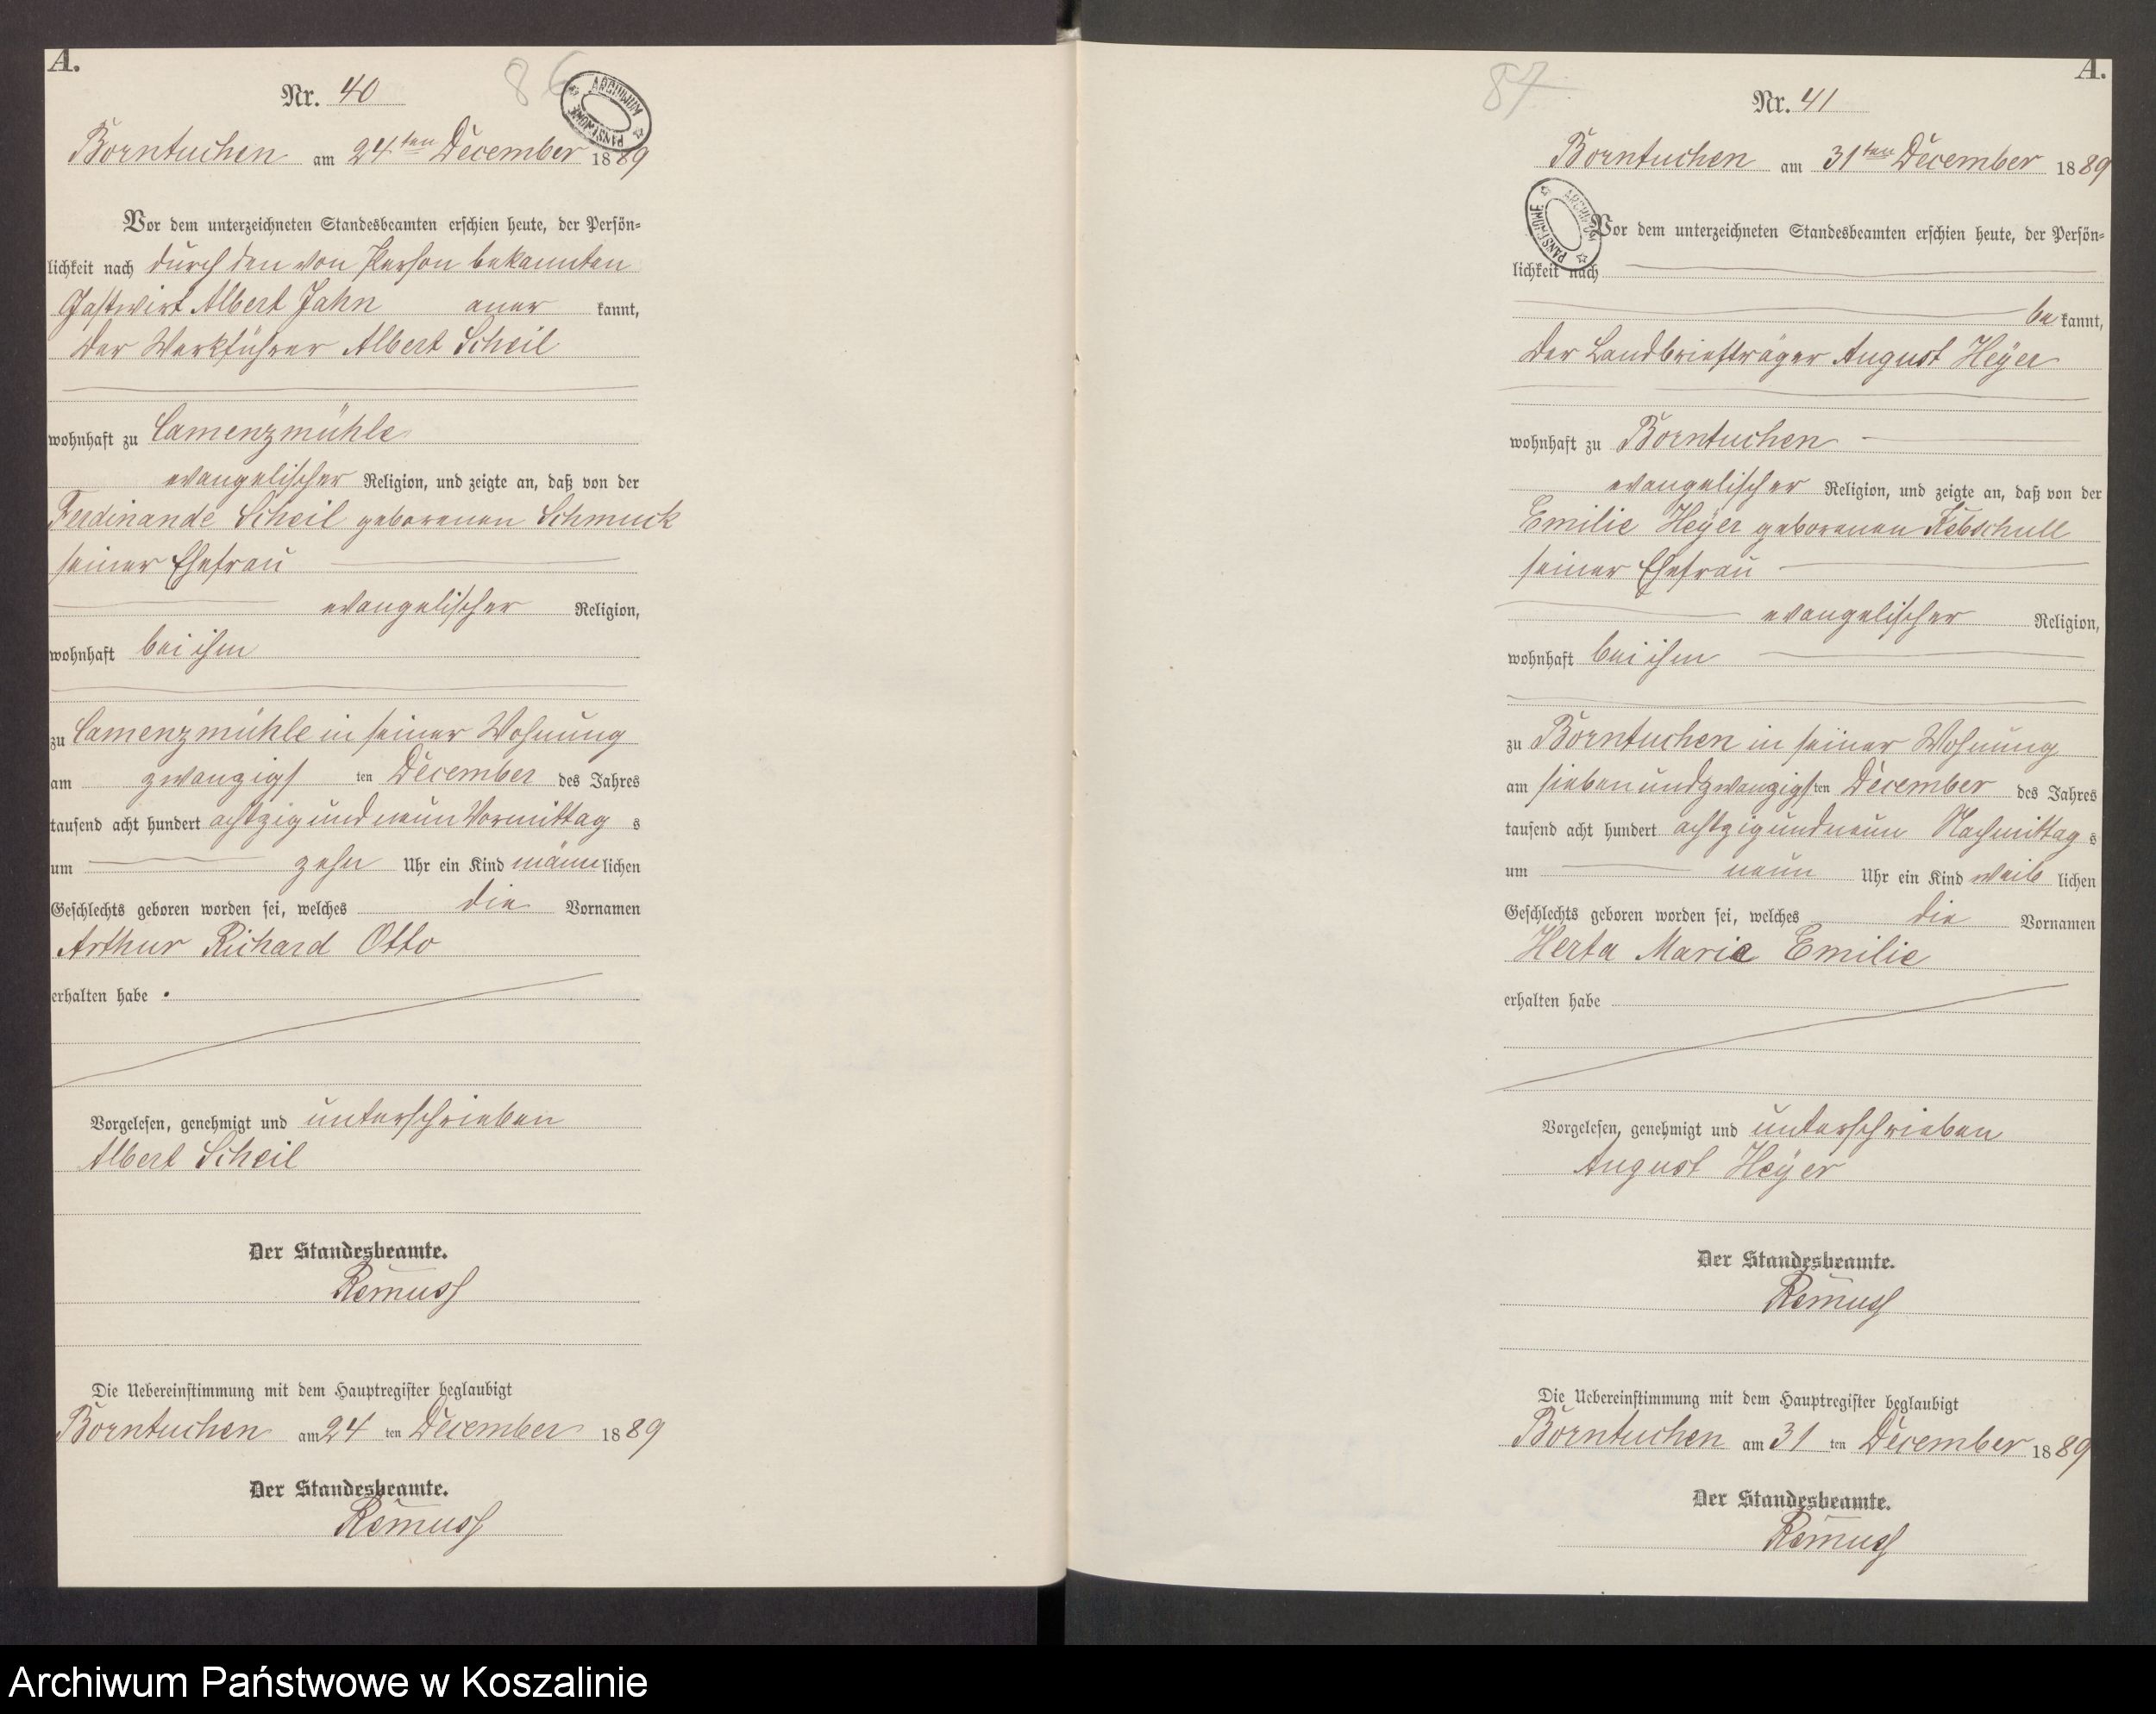 A.
86
Nr. 40
ARCHIWUM PAŃSTWOWE
Borntuchen am 24.ten December 1889
Vor dem unterzeichneten Standesbeamten erschien heute, der Persön-
lichkeit nach durch den von Person bekannten
Gastwirt Albert Jahn aner kannt,
der Werkführer Albert Scheil
wohnhaft zu Camenzmühle
evangelischer Religion, und zeigte an, daß von der
Ferdinande Scheil geborenen Schmuck
seiner Ehefrau
evangelischer Religion,
wohnhaft bei ihm
zu Camenzmühle in seiner Wohnung
am zwanzigs ten December des Jahres
tausend acht hundert achtzig und neun Vormittag s
um zehn Uhr ein Kind männ lichen
Geschlechts geboren worden sei, welches die Vornamen
Arthur Richard Otto
erhalten habe .
Vorgelesen, genehmigt und unterschrieben
Albert Scheil
Der Standesbeamte.
Remuss
Die Uebereinstimmung mit dem Hauptregister beglaubigt
Borntuchen am 24 ten December 1889
Der Standesbeamte.
Remuss
A.
87
Nr. 41
Borntuchen am 31ten December 1889
ARCHIWUM PAŃSTWOWE
Vor dem unterzeichneten Standesbeamten erschien heute, der Persön-
lichkeit nach
be kannt,
der Landbriefträger August Heÿer
wohnhaft zu Borntuchen
evangelischer Religion, und zeigte an, daß von der
Emilie Heÿer geborenen Kebschull
seiner Ehefrau
evangelischer Religion,
wohnhaft bei ihm
zu Borntuchen in seiner Wohnung
am siebenundzwanzigs ten December des Jahres
tausend acht hundert achtzig und neun Nachmittag s
um neun Uhr ein Kind weib lichen
Geschlechts geboren worden sei, welches die Vornamen
Herta Marie Emilie
erhalten habe
Vorgelesen, genehmigt und unterschrieben
August Heÿer
Der Standesbeamte.
Remuss
Die Uebereinstimmung mit dem Hauptregister beglaubigt
Borntuchen am 31 ten December 1889
Der Standesbeamte.
Remuss
Archiwum Państwowe w Koszalinie